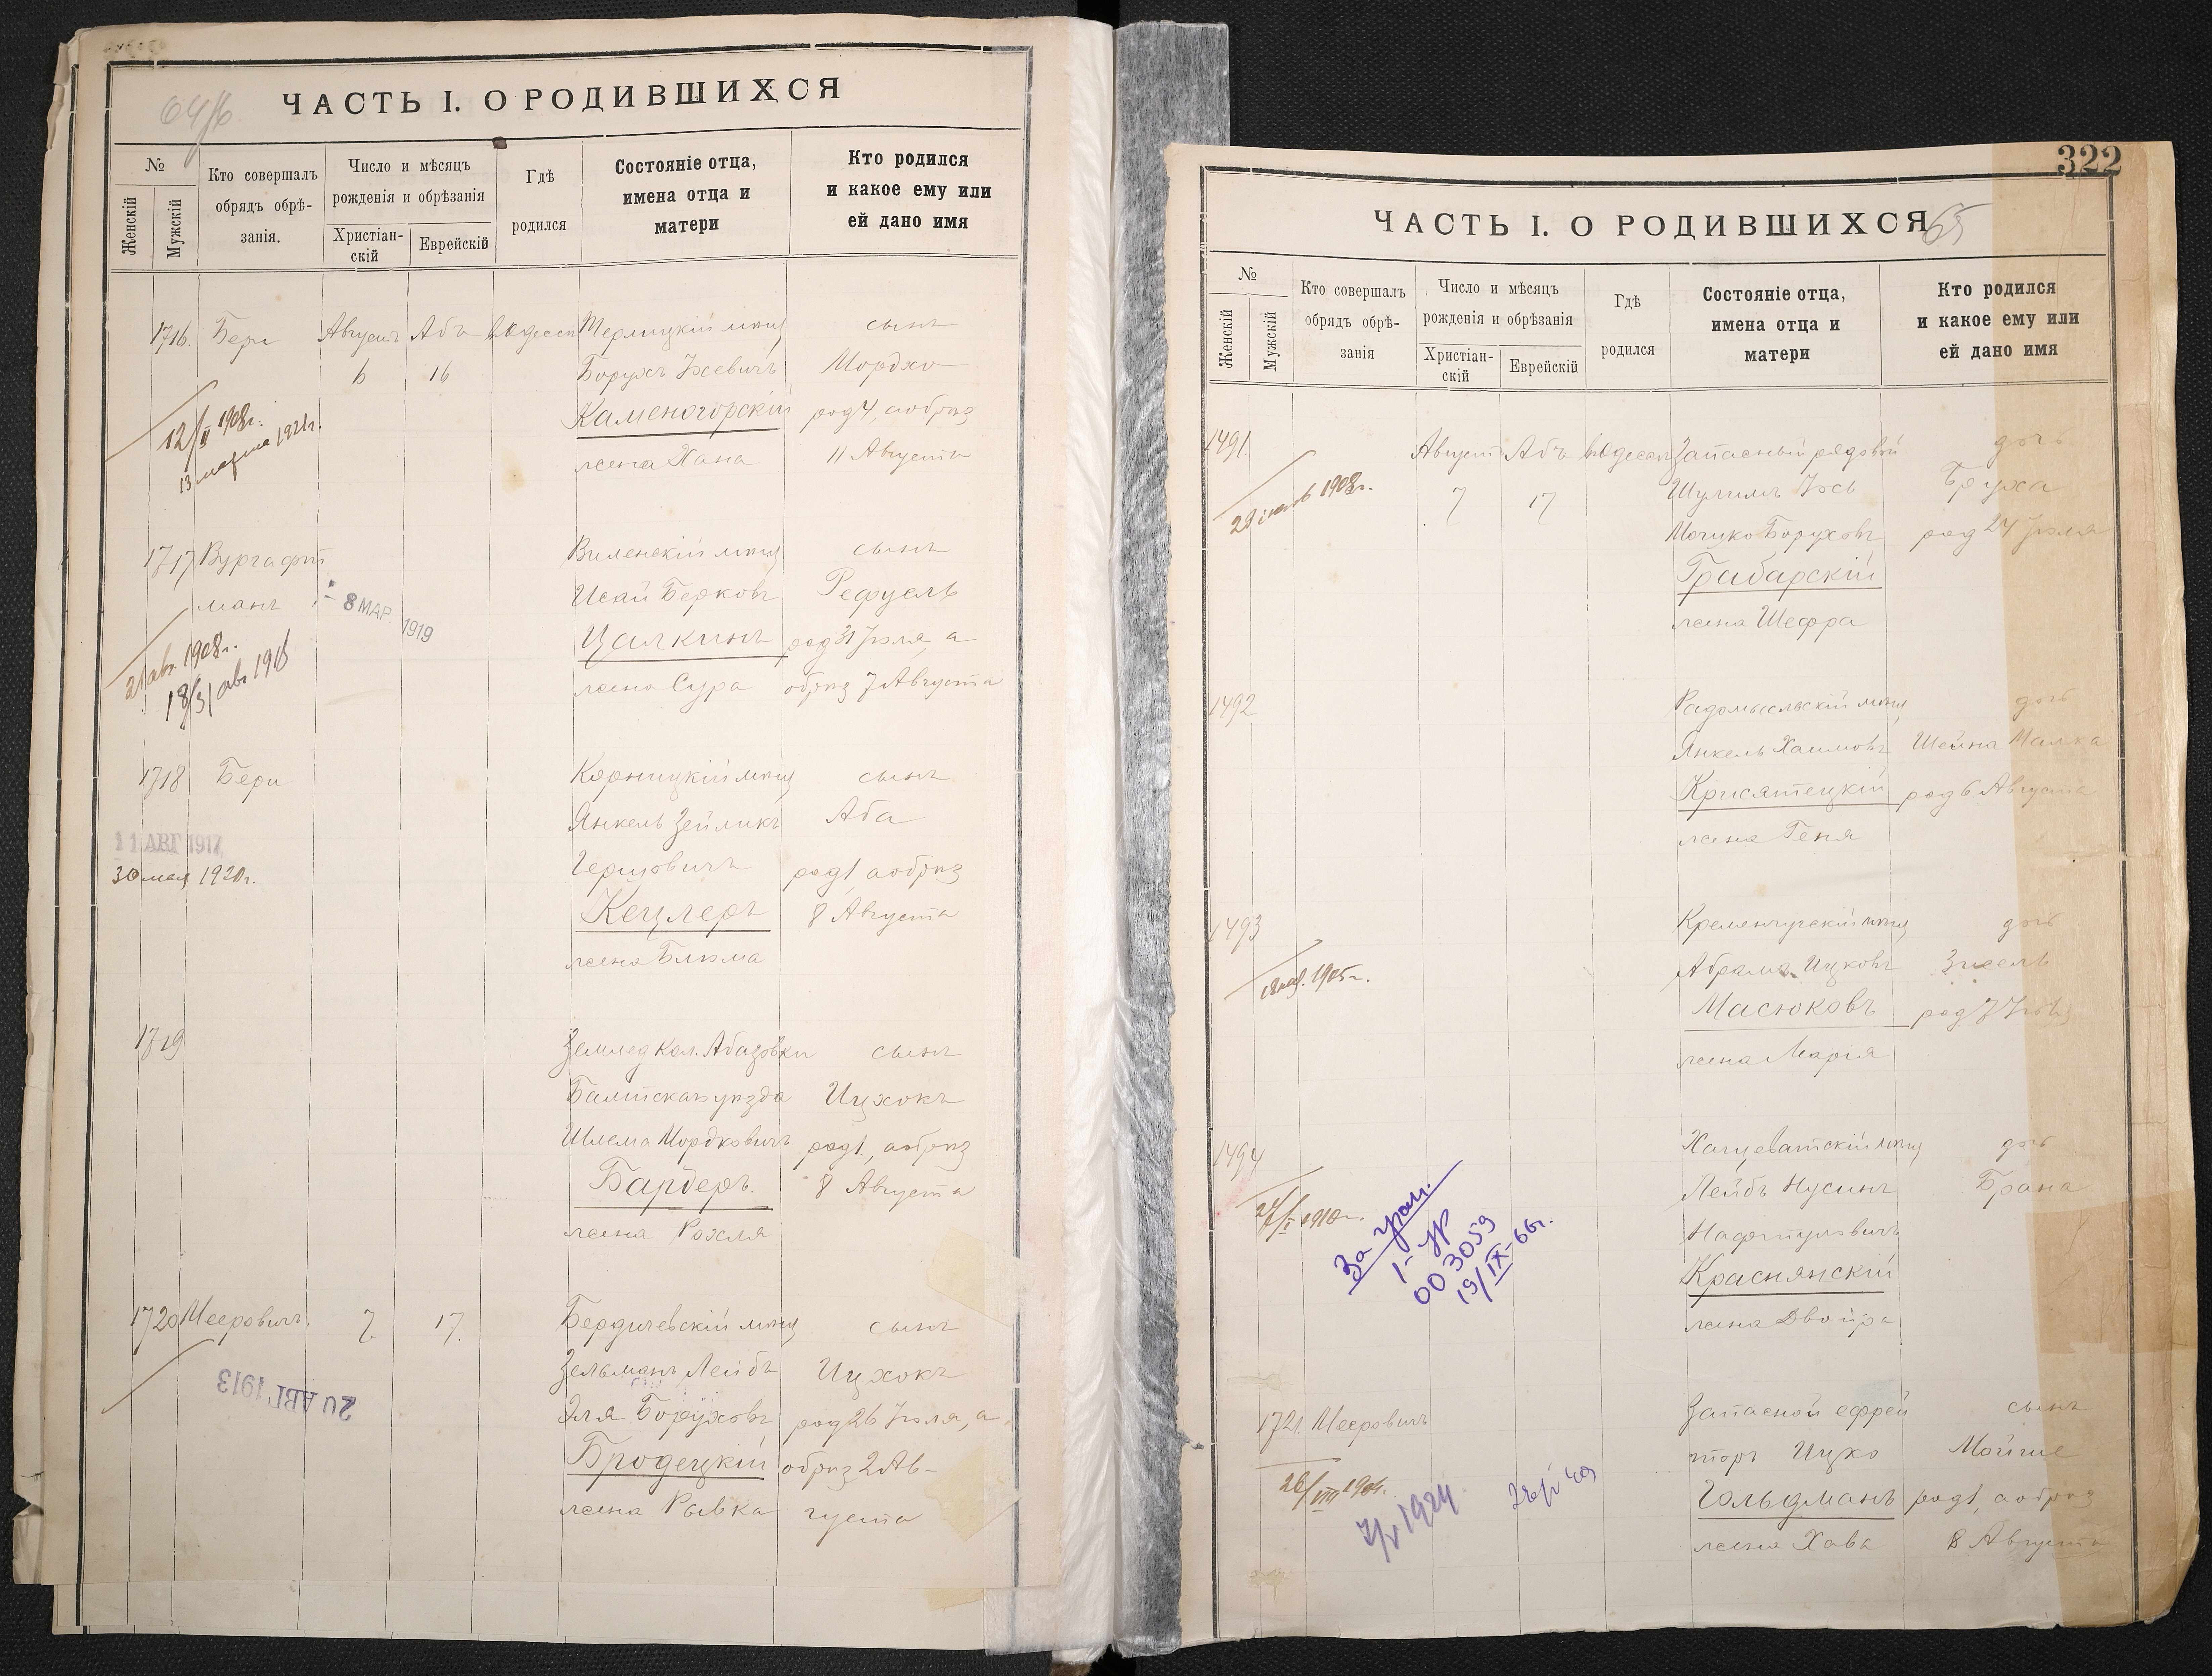 64/6
ЧАСТЬ I. О РОДИВШИХСЯ
№
Женскій
Мужскій
Кто совершалъ
обрядъ обрѣ-
занія.
Число и мѣсяцъ
рожденія и обрѣзанія
Христіан-
скій
Еврейскій
Гдѣ
родился
Состояніе отца,
имена отца и
матери
Кто родился
и какое ему или
ей дано имя
1716. Бери Августъ Абъ въ Одессѣ мѣщ сынъ
6 16 Борухъ Мордко
Каменогорскій род 4, а обрѣз
жена Хана 11 Августа
12/II 1908г.
13 марта 1921г.
1717 Вургафт Виленскій мѣщ сынъ
манъ Исай Берковъ Рефуель
- 8 МАР. 1919
Цалкинъ род 31 Іюля, а
жена Сура обрѣз 7 Августа
21 авг. 1908г.
18/31 авг 1918
1718 Бери мѣщ сынъ
Янкель Зейликъ Аба
Гершовичъ род 1 а обрѣз
Кецлеръ 8 Августа
жена Блюма
11 АВГ 1917
30 мая 1920г.
1719 Землед Кол. Абазовки сынъ
Балтскаго уѣзда Ицхокъ
Шлема Мордковичъ род 1, а обрѣз
Бардеръ. 8 Августа
жена Рохля
1720 Мееровичъ. 7 17. Бердичевскій мѣщ сынъ
Зельманъ Лейбъ Ицхокъ
Эля Боруховъ род 26 Іюля, а
Бродецкій обрѣз 2 Ав-
жена Рывка густа
20 АВГ 1913
322
65
ЧАСТЬ I. О РОДИВШИХСЯ
№
Женскій
Мужскій
Кто совершалъ
обрядъ обрѣ-
занія
Число и мѣсяцъ
рожденія и обрѣзанія
Христіан-
скій
Еврейскій
Гдѣ
родился
Состояніе отца,
имена отца и
матери
Кто родился
и какое ему или
ей дано имя
1491. Августъ Абъ въ Одессѣ Запасный рядовой дочь
7 17 Шулимъ Іось Бруха
Мошко Боруховъ род 24 Іюля
Грабарскій
жена Шефра
1908г.
1492 Радомысльскій мѣщ дочь
Янкель Хаимовъ Шейна Малка
Крисятецкій род 6 Августа
жена Геня
1493 Кременчугскій мѣщ дочь
Абрамъ Ицковъ Зисель
Масюковъ род 7
жена Марія
1905г.
1494 Хащеватскій мѣщ дочь
Лейбъ Нусинъ Брана
Нафтуловичъ
Краснянскій
жена Двойра
1910г.
За гран.
003059
19/IX-66г.
1721. Мееровичъ Запасной ефрей сынъ
торъ Ицко Мойше
Гольдманъ род 1, а обрѣз
жена Хава 8 Августа
26/VIII 1904.
7/V 1924